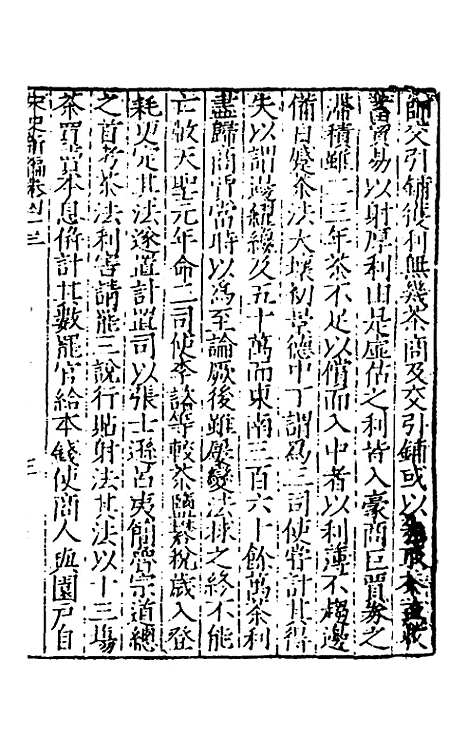 師交引鋪獲利無幾茶商及交引鋪或以券取茶或收
蓄貿易以射厚利由是虛估之利皆入豪商巨賈券之
滯積雖二三年茶不足以償而入中者以利薄不趨邊
備日蹙茶法大壞初景德中丁謂爲三司使嘗計其得
失以謂邊糴纔及五十萬而東南三百六十餘萬茶利
盡歸商賈當時以爲至論厥後雖屢變法捄之終不能
亡敝天聖元年命二司使李諮等較茶鹽礬稅歲入登
耗更定其法遂置計置司以張士遜呂夷簡魯宗道總
之首考茶法利害請罷三說行貼射法其法以十三塲
茶買賣本息倂計其數罷官給本錢使商人與園戶自
宋史新編卷
三